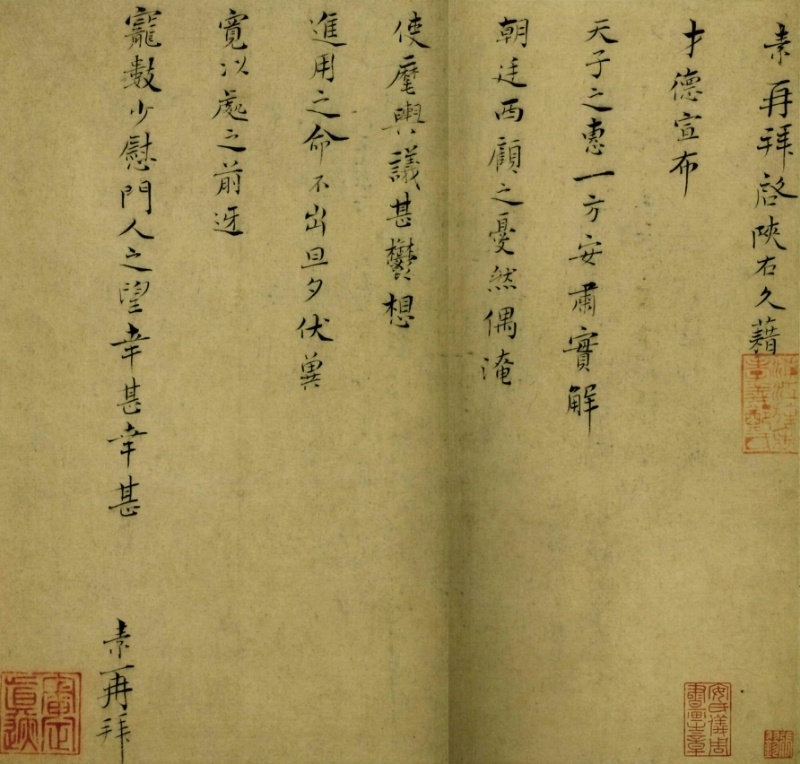 素再拜啓陝右久藉
才德宣布
天子之惠一方安肅實解
朝廷西顧之憂然偶淹
使麾輿議甚鬱想
進用之命不出旦夕伏兾
寛以處之前迓
寵數少慰門人之望幸甚幸甚
素再拜
安儀周
書畫之章